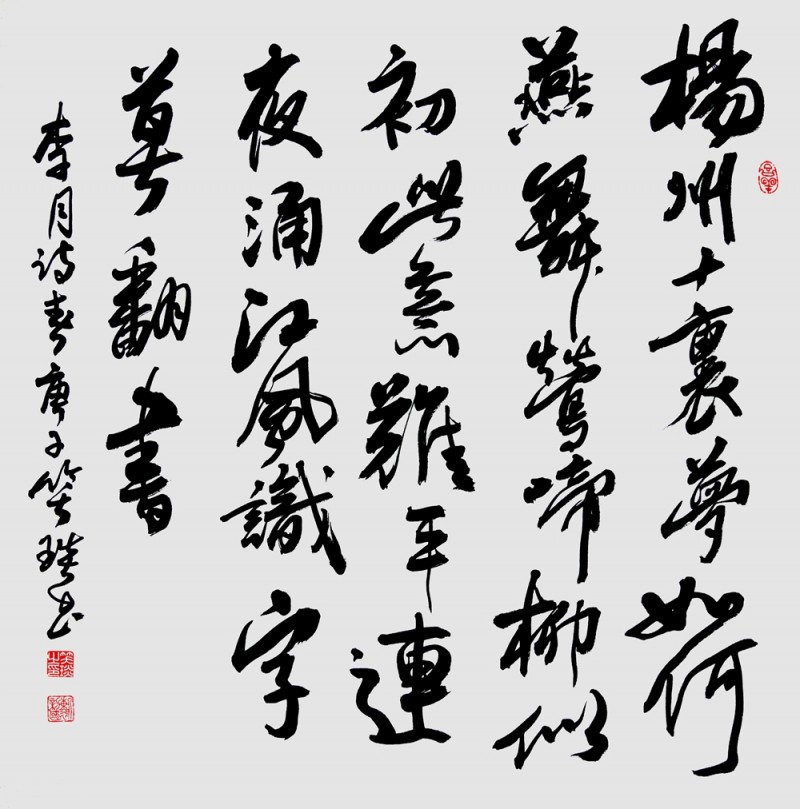 楊州十裏夢如何
燕舞鶯啼柳似
初此意難平連
夜涌江風識字
莫翻書
李月诗春庚子笑书